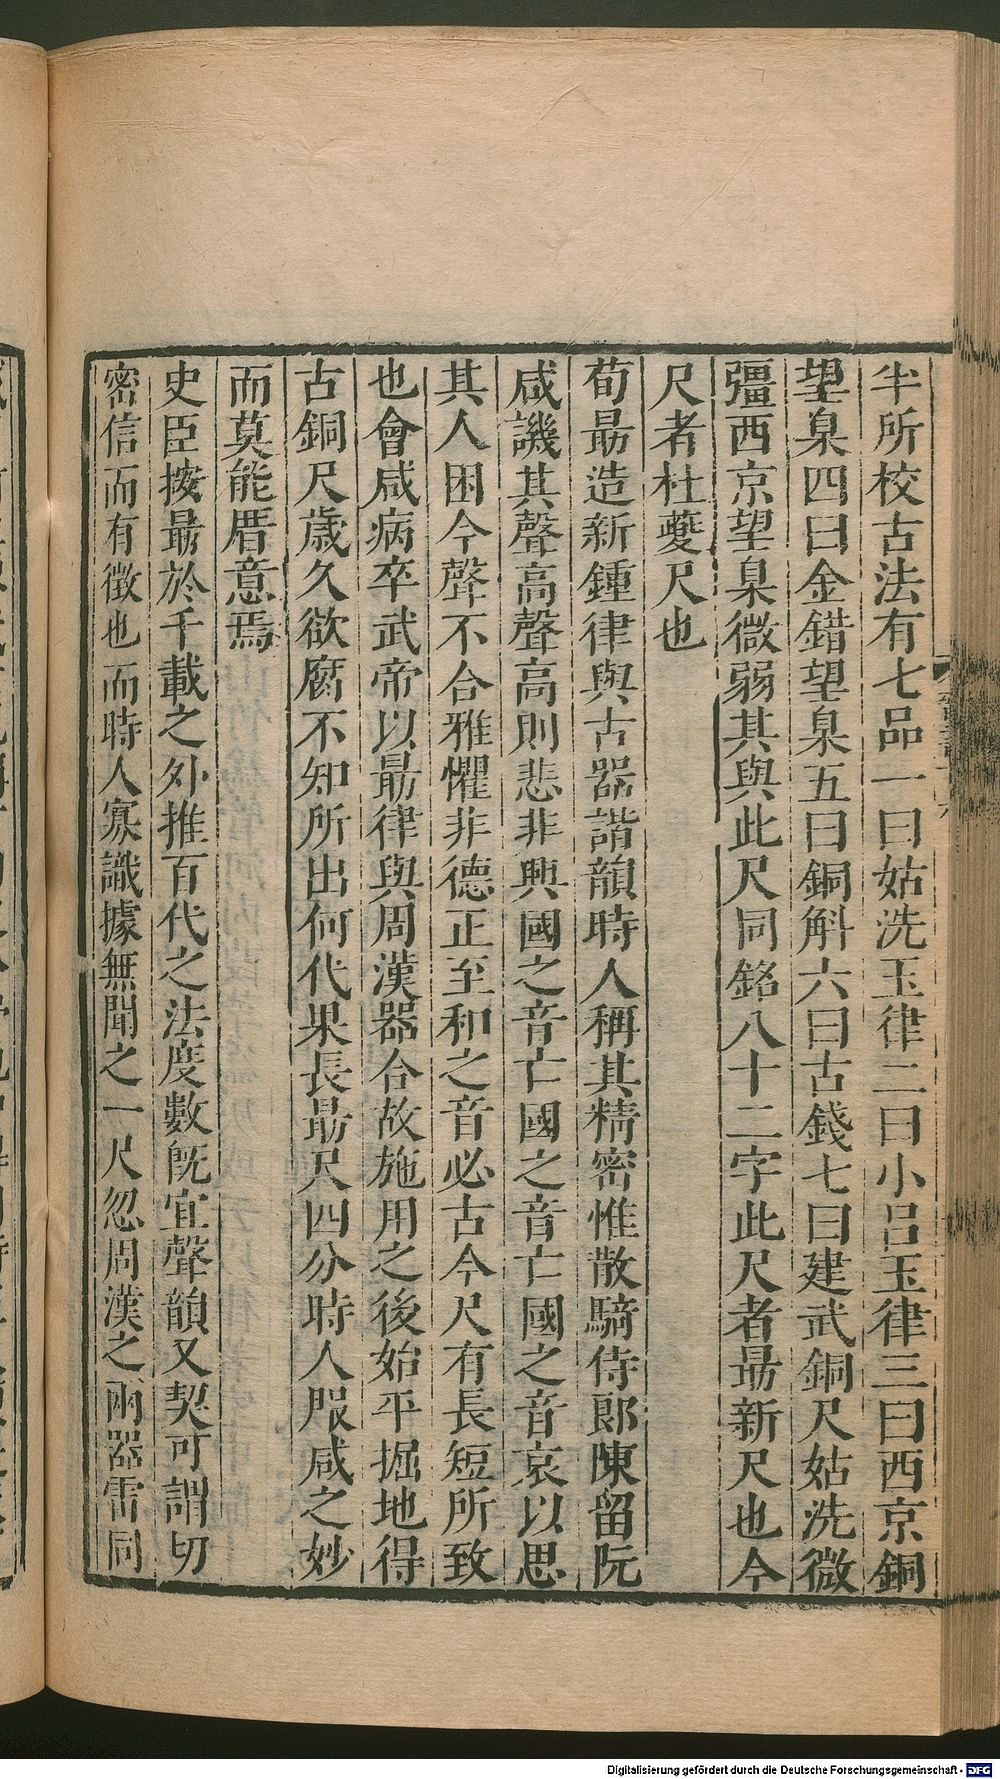 半所校古法有七品一曰姑洗玉律二曰小呂玉律三曰西京銅
望臬四曰金錯望臬五曰銅斛六曰古錢七曰建武銅尺姑洗微
彊西京望臬微弱其與此尺同銘八十二字此尺者勗新尺也今
尺者杜夔尺也
荀勗造新鍾律與古器諧韻時人稱其精密惟散騎侍郎陳留阮
咸譏其聲高聲高則悲非興國之音亡國之音亡國之音哀以思
其人困今聲不合雅懼非德正至和之音必古今尺有長短所致
也會咸病卒武帝以勗律與周漢器合故施用之後始平掘地得
古銅尺歲久欲腐不知所出何代果長勗尺四分時人服咸之妙
而莫能厝意焉
史臣按勗於千載之外推百代之法度數旣宜聲韻又契可謂切
密信而有徵也而時人寡識據無聞之一尺忽周漢之兩器雷同
Digitalisierung gefördert durch die Deutsche Forschungsgemeinschaft - DFG